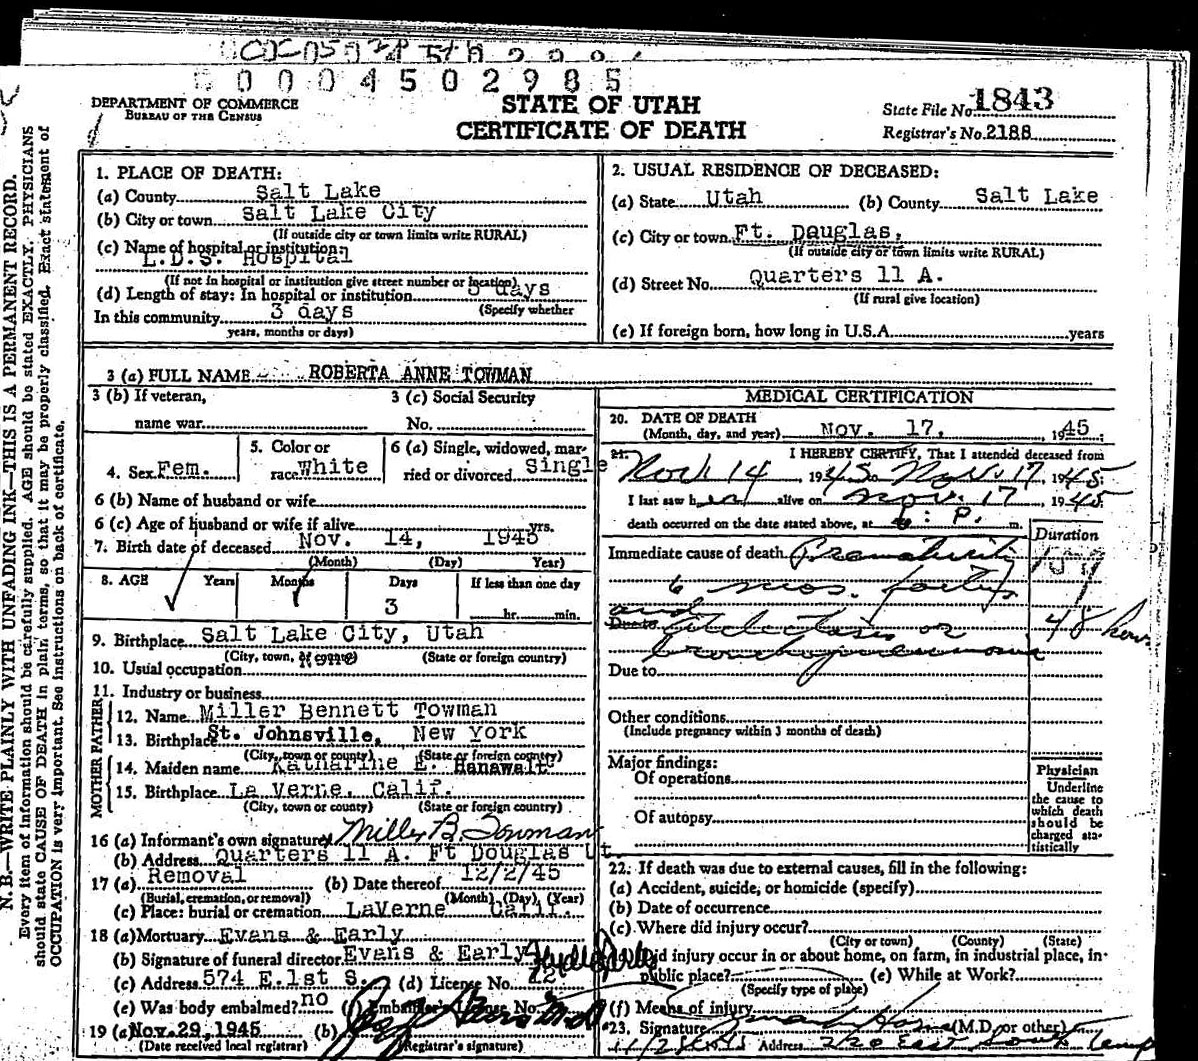 0004502985
DEPARTMENT OF COMMERCE
BUREAU OF THE CENSUS
STATE OF UTAH
CERTIFICATE OF DEATH
State File No. 1843
Registrar's No. 2188
N. B.—WRITE PLAINLY WITH UNFADING INK—THIS IS A PERMANENT RECORD.
Every item of information should be carefully supplied. AGE should be stated EXACTLY. PHYSICIANS
should state CAUSE OF DEATH in plain terms, so that it may be properly classified. Exact statement of
OCCUPATION is very important. See instructions on back of certificate.
1. PLACE OF DEATH:
(a) County Salt Lake
(b) City or town Salt Lake City
(If outside city or town limits write RURAL)
(c) Name of hospital or institution:
L.D.S. Hospital
(If not in hospital or institution give street number or location)
(d) Length of stay: In hospital or institution 3 days
(Specify whether
In this community 3 days
years, months or days)
2. USUAL RESIDENCE OF DECEASED:
(a) State Utah (b) County Salt Lake
(c) City or town Ft. Douglas,
(If outside city or town limits write RURAL)
(d) Street No. Quarters 11 A.
(If rural give location)
(e) If foreign born, how long in U.S.A. years
3 (a) FULL NAME ROBERTA ANNE TOWMAN
3 (b) If veteran,
name war
3 (c) Social Security
No.
4. Sex Fem.
5. Color or
race White
6 (a) Single, widowed, mar-
ried or divorced Single
6 (b) Name of husband or wife
6 (c) Age of husband or wife if alive yrs.
7. Birth date of deceased Nov. 14, 1945
(Month) (Day) (Year)
8. AGE Years Months Days If less than one day
3 hr. min.
9. Birthplace Salt Lake City, Utah
(City, town, or county) (State or foreign country)
10. Usual occupation
11. Industry or business
FATHER
12. Name Miller Bennett Towman
13. Birthplace St. Johnsville, New York
(City, town or county) (State or foreign country)
MOTHER
14. Maiden name Katharine E. Hanawalt
15. Birthplace La Verne, Calif.
(City, town or county) (State or foreign country)
16 (a) Informant's own signature Miller B. Towman
(b) Address Quarters 11 A. Ft Douglas Ut.
17 (a) Removal (b) Date thereof 12/2/45
(Burial, cremation, or removal) (Month) (Day) (Year)
(c) Place: burial or cremation LaVerne Calif.
18 (a) Mortuary Evans & Early
(b) Signature of funeral director Evans & Early
(c) Address 574 E. 1st S. (d) License No.
(e) Was body embalmed? no (f) Embalmer's License No.
19 (a) Nov. 29, 1945 (b)
(Date received local registrar) (Registrar's signature)
MEDICAL CERTIFICATION
20. DATE OF DEATH
(Month, day, and year) Nov. 17, 1945
21. I HEREBY CERTIFY, That I attended deceased from
Nov. 14 1945 to Nov. 17 1945
I last saw her alive on Nov. 17 1945
death occurred on the date stated above, at : P. m.
Duration
Immediate cause of death Prematurity
6 mos. foetus
and
Due to Atelectasis or 48 hours
bronchopneumonia
Due to
Other conditions
(Include pregnancy within 3 months of death)
Major findings:
Of operations
Of autopsy
Physician
Underline
the cause to
which death
should be
charged sta-
tistically
22. If death was due to external causes, fill in the following:
(a) Accident, suicide, or homicide (specify)
(b) Date of occurrence
(c) Where did injury occur?
(City or town) (County) (State)
Did injury occur in or about home, on farm, in industrial place, in
public place? (e) While at Work?
(Specify type of place)
(f) Means of injury
23. Signature (M.D. or other)
Address East South Temp